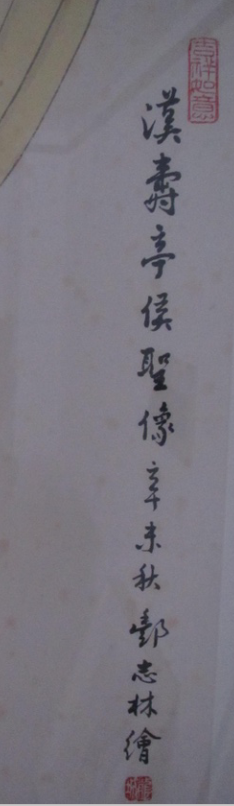 吉祥如意
漢壽亭侯聖像辛未秋鄧志林繪